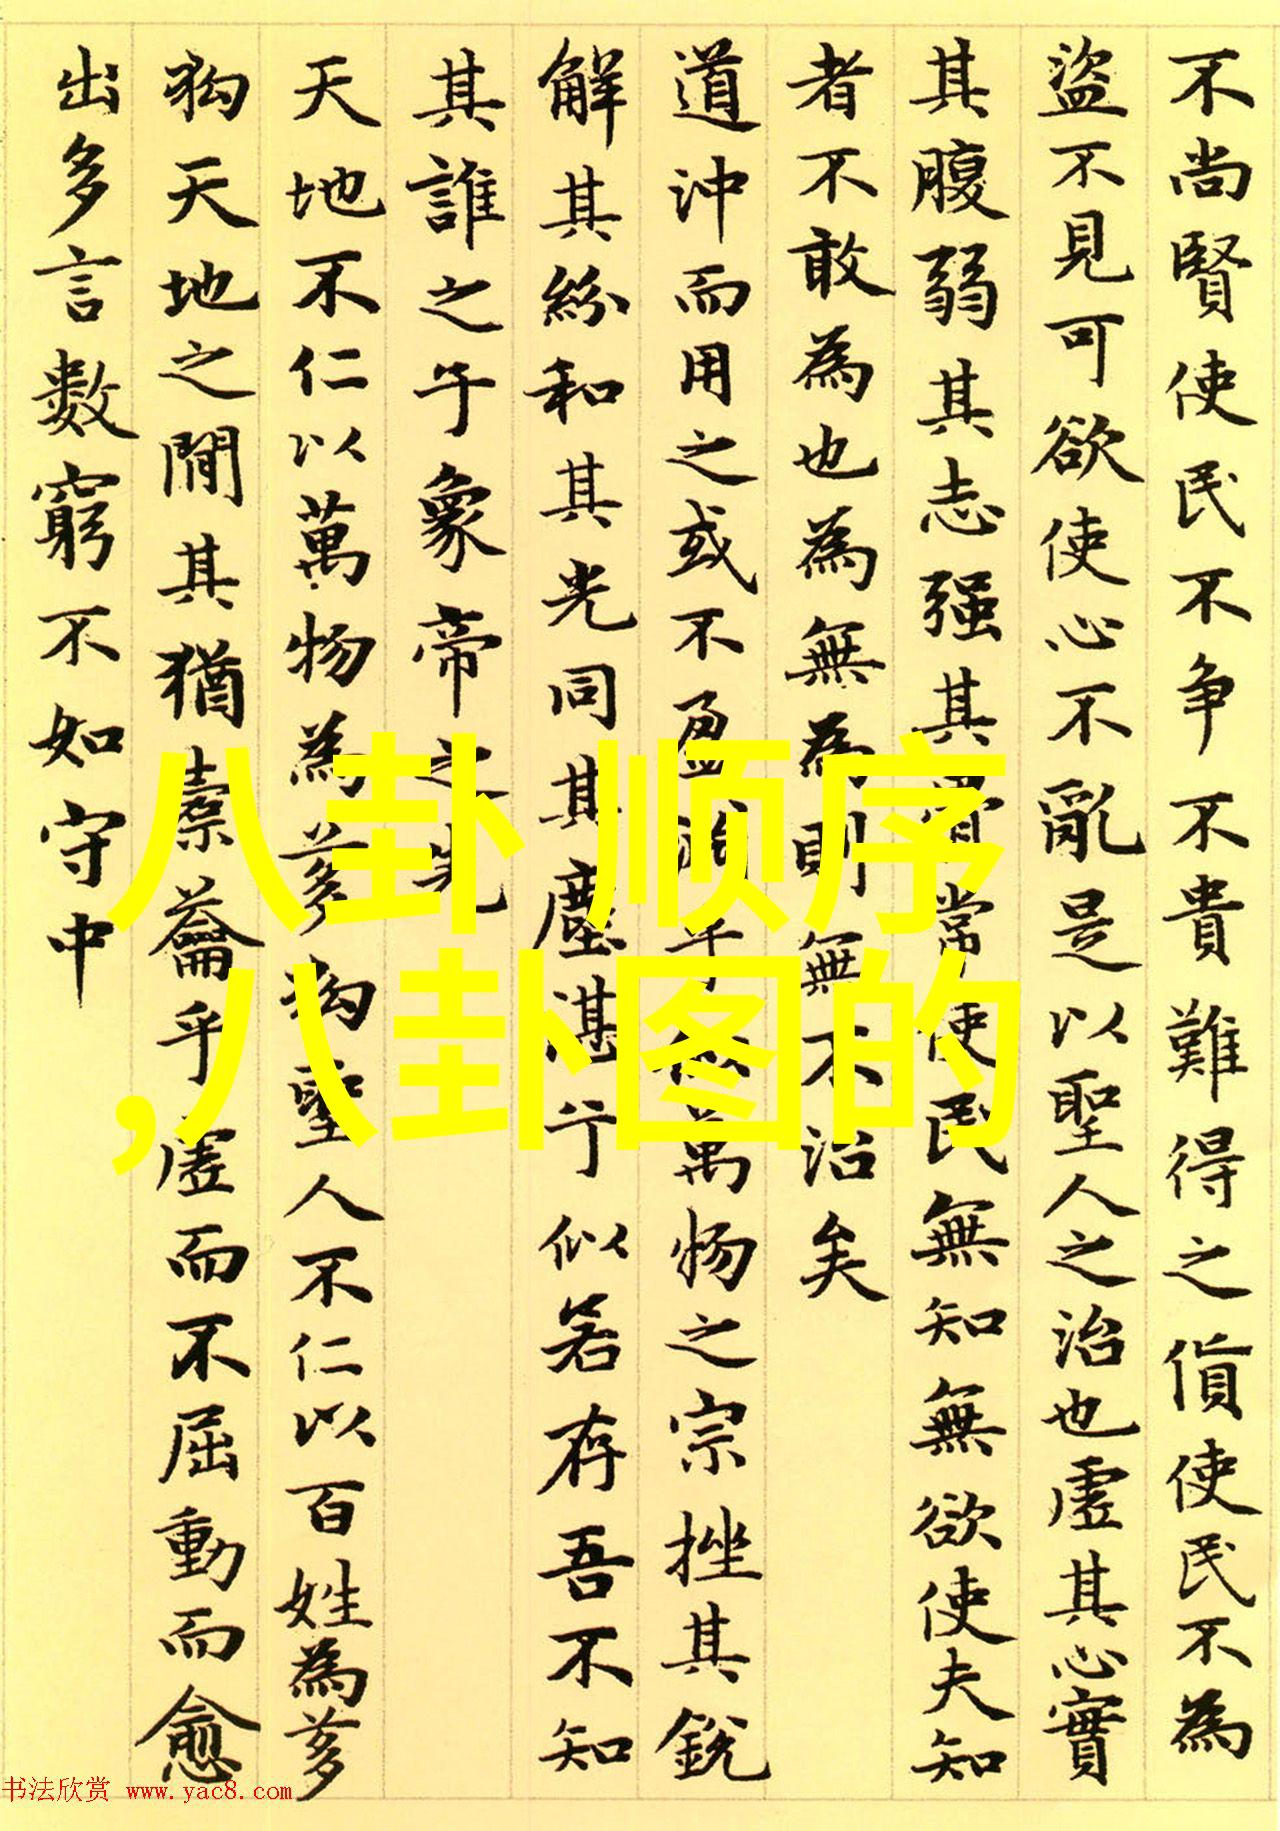 不尚賢使民不争不貴難得之貨使民不為
盜不見可欲使心不亂是以聖人之治也虛其心實
其腹弱其志强其骨常使民無知無欲使夫知
者不敢為也為無為則無不治矣
道沖而用之或不盈乎萬物之宗挫其銳
解其紛和其光同其塵湛兮似若存吾不知
其誰之子象帝之先
天地不仁以萬物為芻狗聖人不仁以百姓為芻
狗天地之間其猶橐籥乎虛而不屈動而愈
出多言數窮不如守中
八卦 顺序
,八卦图的
书法欣赏 www.yac8.com